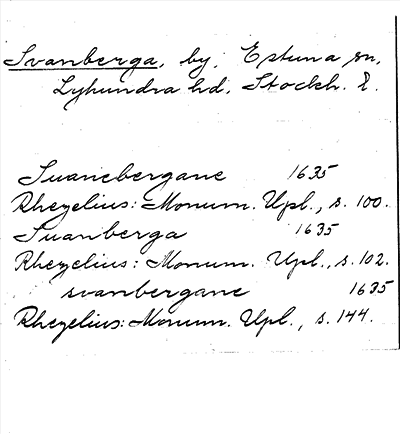 Svanberga, by, Estuna sn,
Lyhundra hd, Stockh. l.
Suanebergane 1635
Rhezelius: Monum. Upl., s. 100.
Suanberga 1635
Rhezelius: Monum. Upl., s. 102.
svanbergane 1635
Rhezelius: Monum. Upl., s. 144.